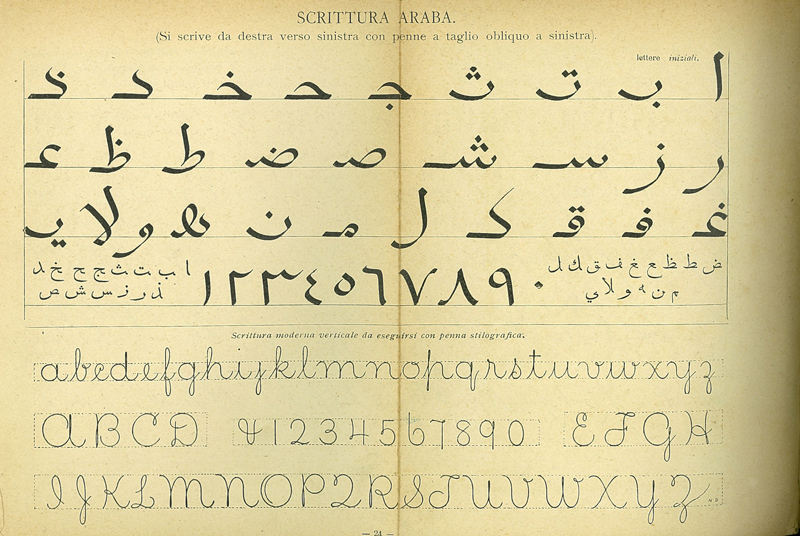 SCRITTURA ARABA.
(Si scrive da destra verso sinistra con penne a taglio obliquo a sinistra).
lettere iniziali.
ا ب ت ث ج ح خ د ذ
ر ز س ش ص ض ط ظ ع
غ ف ق ك ل م ن ه و لا ي
ا ب ت ث ج ح خ د
ذ ر ز س ش ص
١ ٢ ٣ ٤ ٥ ٦ ٧ ٨ ٩ ٠
ض ط ظ ع غ ف ق ك ل
م ن ه و لا ي
Scrittura moderna verticale da eseguirsi con penna stilografica.
a b c d e f g h i j k l m n o p q r s t u v w x y z
A B C D & 1 2 3 4 5 6 7 8 9 0 E F G H
I J K L M N O P Q R S T U V W X Y Z
— 24 —